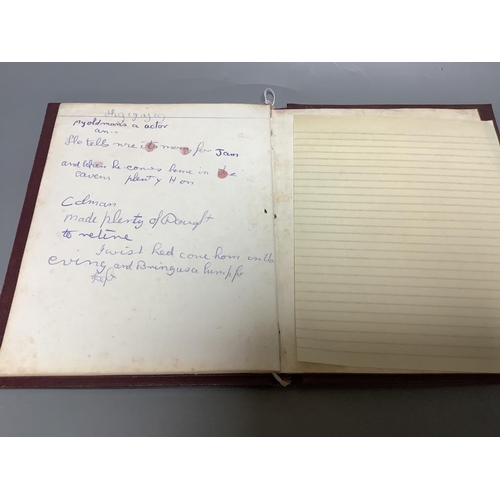 my old mans a actor
an
He tells me its money for Jam
and when he comes home in the
evening plenty H on
Colman
made plenty of Dought
to retire
I wist hed come hom in the
evening and Bring us a lump for